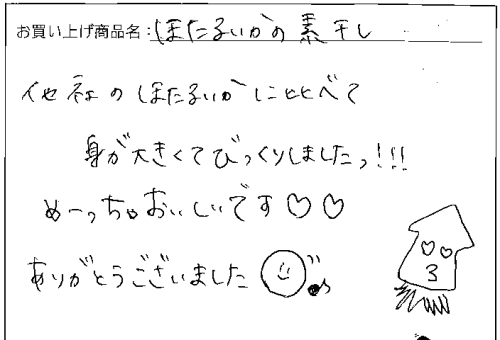 お買い上げ商品名:ほたるいかの素干し
他社のほたるいかに比べて
身が大きくてびっくりしましたっ!!!
めーっちゃおいしいです♡♡
ありがとうございました